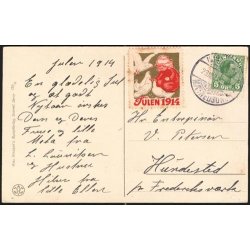 Julen 1914
En glædelig Jul
og et godt
Nytaar ønskes
Dem og Deres
Frue og lille
fra
L. Lauritzen
og Hustru
Hilsen fra
lille Ellen
JULEN 1914
5
Hr Entreprenør
V. Petersen
Hundested
pr Frederiksværk